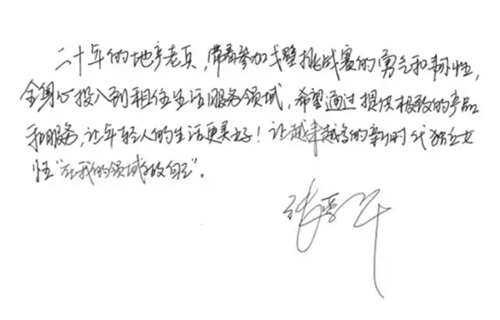 二十年的地产老兵,带着参加戈壁挑战赛的勇气和韧性,
全身心投入到租住生活服务领域,希望通过提供极致的产品
和服务,让年轻人的生活更美好!让越来越多的新时代独立女
性“在我的领域做自己”。